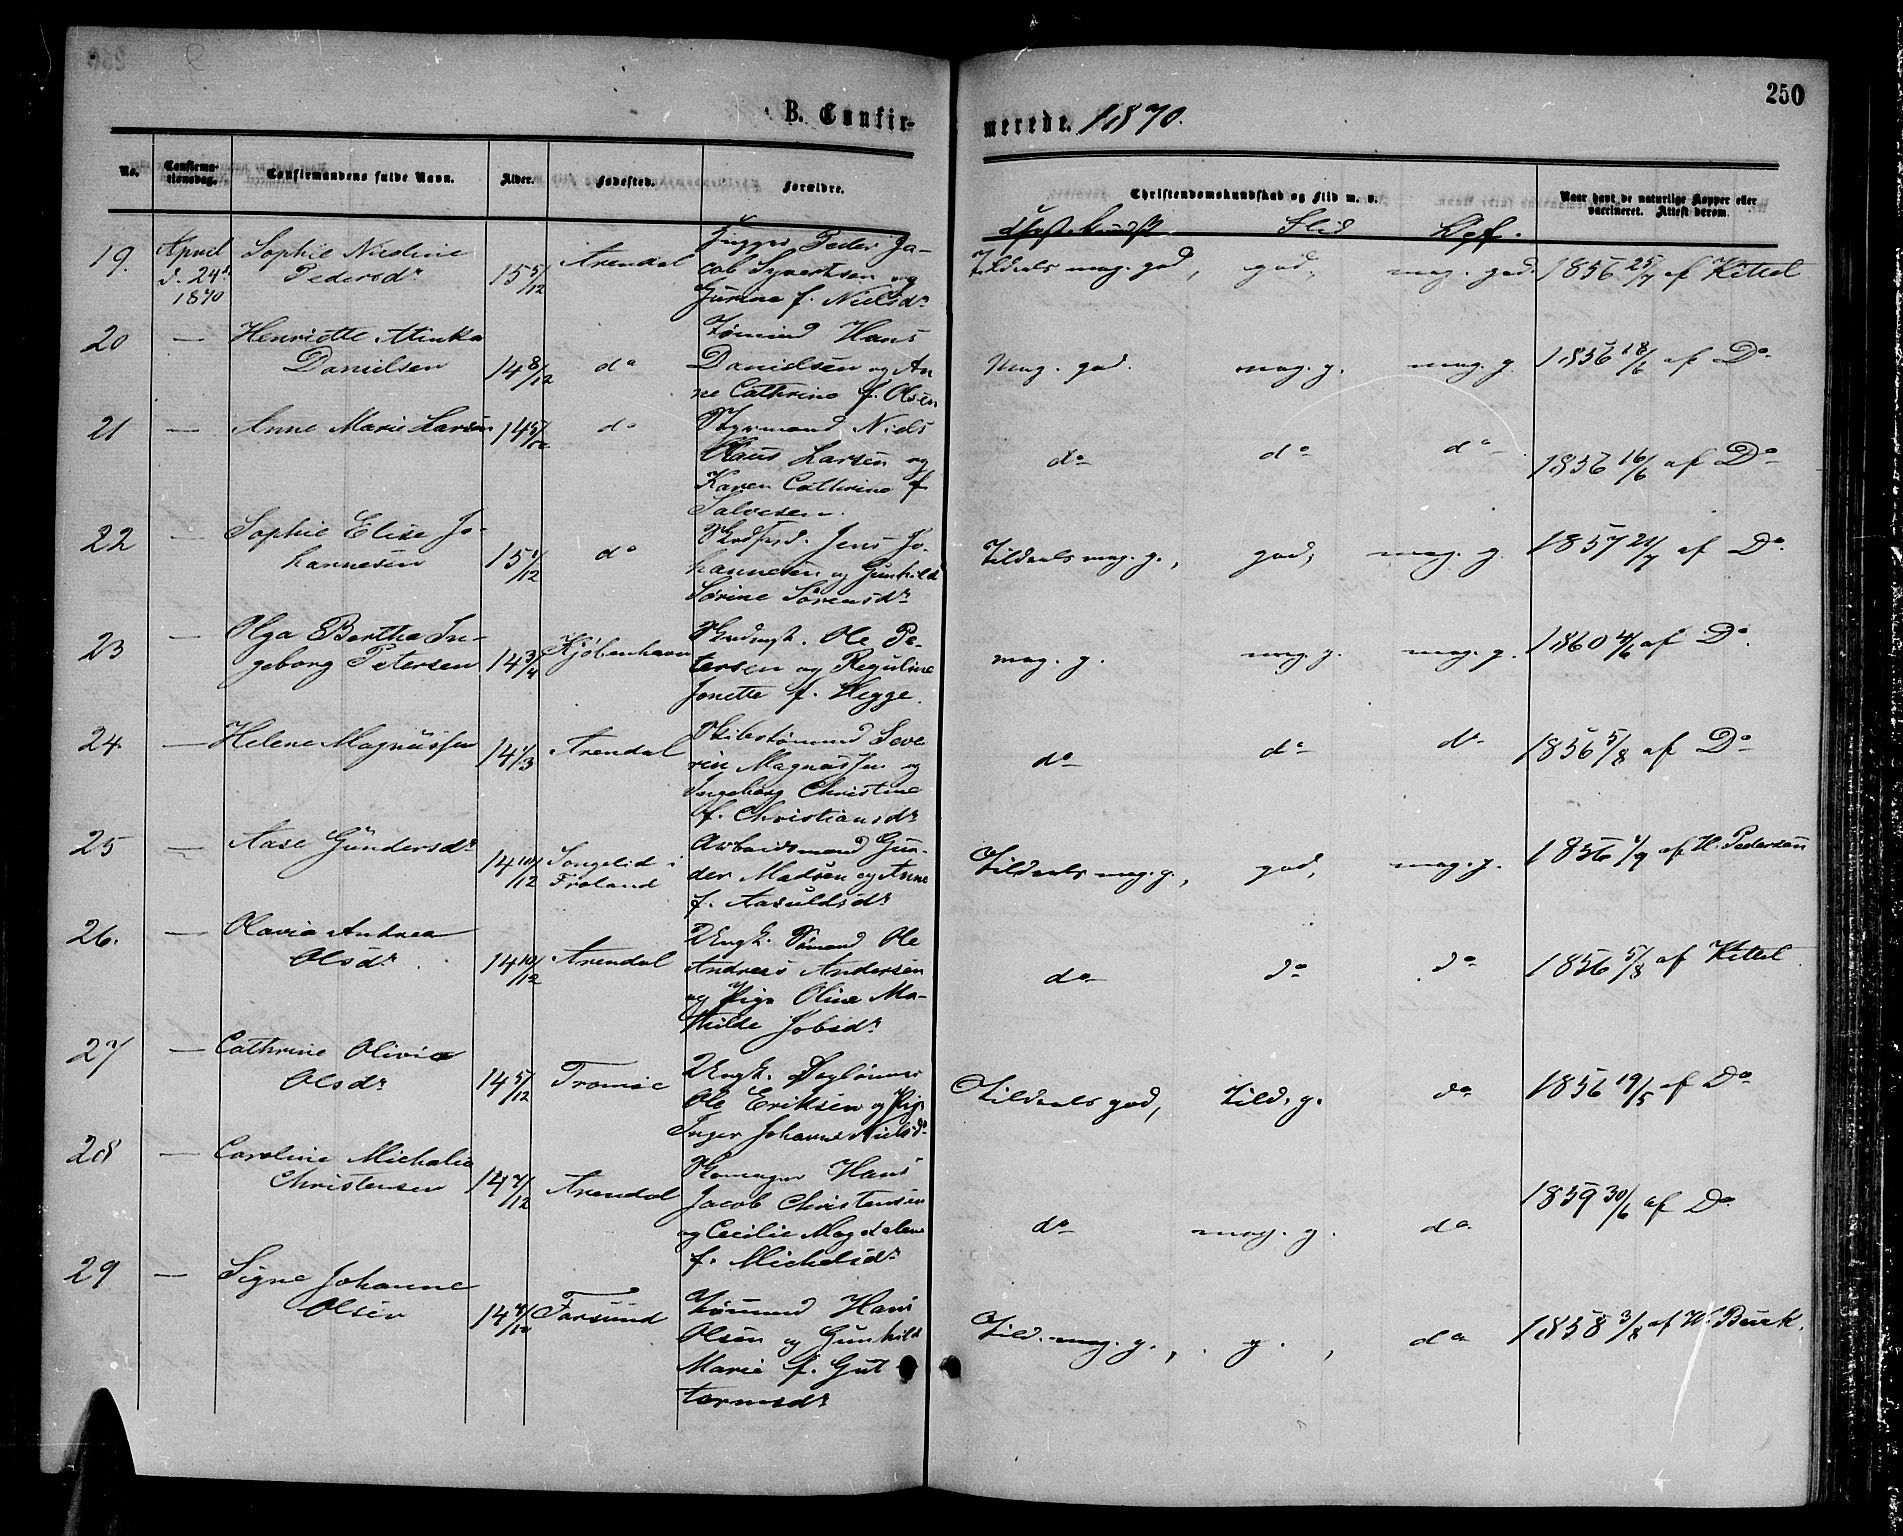 250
B. Confir-
merede. 1870.
No.
Confirma-
tionsdag.
Confirmandens fulde Navn.
Alder.
Fødested.
Forældre.
Christendomskundskab og Flid m. v.
Naar havt de naturlige Kopper eller
vaccineret. Attest derom.
Flid
Opf.
19.
April
d. 24de
1870
Sophie Nicoline
Pedersdr
15 5/12
Arendal
Peder Ja-
cob Syvertsen og
Gurine f. Nielsdr
Tildeels mag. god,
god,
mag. god.
1856 25/7 af Kittel
20
—
Henriette Minka
Danielsen
14 8/12
do
Tømmd Hans
Danielsen og An
ne Cathrine f. Olsen
Mag. god.
mag. g.
mag. g.
1856 18/6 af Do
21
—
Anne Marie Larsen
14 5/12
do
Niels
Claus Larsen og
Karen Cathrine f.
Salvesen.
do
do
do
1856 16/6 af Do
22
—
Sophie Elise Jo-
hannesen
15 1/12
do
Jens Jo-
hannesen og Gunhild
Sørine Sørensdr
Tildeels mag. g.,
god,
mag. g.
1857 21/7 af Do
23
—
Olga Bertha In-
geborg Petersen
14 3/4
Kjøbenhavn
Ole Pe-
tersen og Reguline
Jonette f. Hegge.
mag. g.
mag. g.
mag. g.
1860 4/6 af Do
24.
—
Helene Magnussen
14 1/3
Arendal
Skibstømmd Seve
rin Magnussen og
Ingeborg Christine
f. Christiansdr
do
do
do
1856 5/8 af Do
25
—
Aase Gundersdr
14 10/12
Songelid i
Froland
Arbeidsmand Gun-
der Madsen og Anne
f. Aasuldsdr
Tildeels mag. g.,
god,
mag. g.
1856 4/9 af H. Pedersen
26.
—
Olavia Andrea
Olsdr
14 10/12
Arendal
Ungk. Sømand Ole
Andreas Andersen
og Pige Oline Ma-
thilde Jobsdr
do
do
do
1856 5/8 af Kittel
27
—
Cathrine Olivia
Olsdr
14 5/12
Tromøe
Ungk. Daglønner
Ole Eriksen og Pige
Inger Johanne Nielsdr
Tildeels god,
Tild. g.
do
1856 19/5 af Do
28
—
Caroline Michalia
Christensen
14 7/12
Arendal
Hans
Jacob Christensen
og Cecilie Magdalene
f. Michelsdr
do
mag. g.
do
1859 30/6 af Do
29
—
Signe Johanne
Olsen
14 7/12
Farsund
Tømmd Hans
Olsen og Gunhild
Marie f. Gut
tormsdr
Tild. mag. g.,
g.,
do
1858 3/8 af H. Burk.